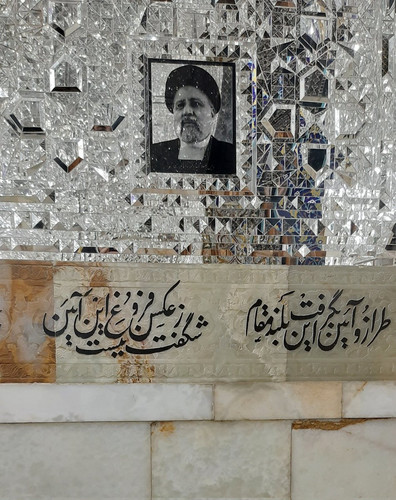 طراز و آئین گرفت این بلند مقام
شگفت نیست ز عکس فروغ این آئین